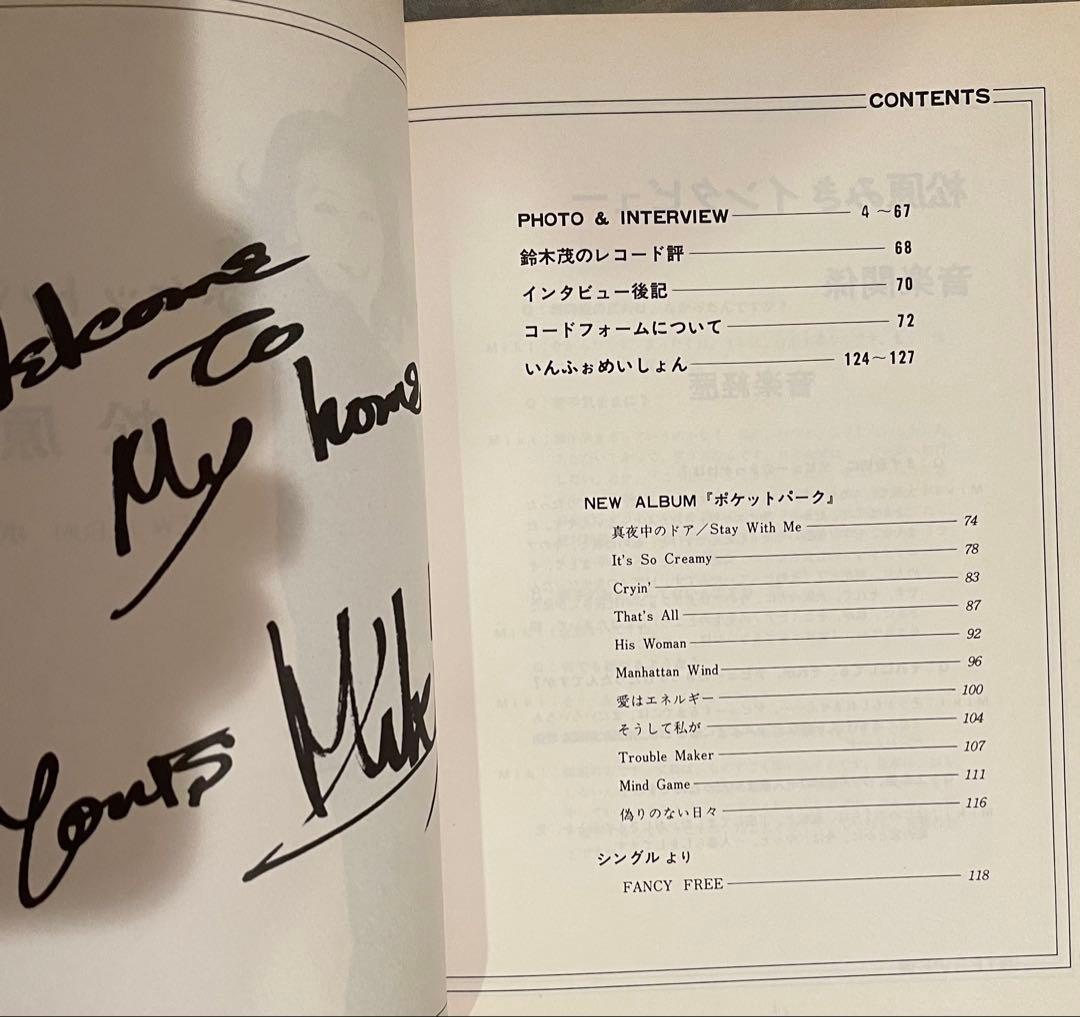 Welcome
To
My home
Yours Miki
CONTENTS
PHOTO & INTERVIEW 4～67
鈴木茂のレコード評 68
インタビュー後記 70
コードフォームについて 72
いんふぉめいしょん 124～127
NEW ALBUM『ポケットパーク』
真夜中のドア／Stay With Me 74
It's So Creamy 78
Cryin' 83
That's All 87
His Woman 92
Manhattan Wind 96
愛はエネルギー 100
そうして私が 104
Trouble Maker 107
Mind Game 111
偽りのない日々 116
シングルより
FANCY FREE 118